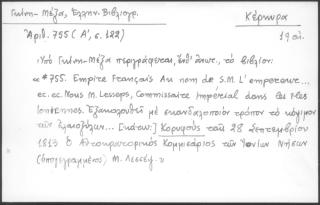 Γκίνη - Μέξα, Ἑλλην. Βιβλιογρ.
Κέρκυρα
Ἀριθ. 755 (Α', σ. 122)
19 αἰ.
Ὑπὸ Γκίνη-Μέξα περιγράφεται, τὸ βιβλίον:
« # 755. Empire Français Au nom de S.M. L'empereur...
etc. etc. Nous M. Lesseps, Commissaire impérial dans les Iles
Ioniennes. Ἐξακολουθεῖ μὲ σκανδαλοποιὸν τρόπον τὸ κόψιμον
τῶν ἐλαιοδένδρων... [κάτω:] Κορυφοὺς ταῖς 28 Σεπτεμβρίου
1813 Ὁ Αὐτοκρατορικὸς Κομισσάριος τῶν Ἰονίων Νήσων
(ὑπογεγραμμένος) Μ. Λεσσέψ. »